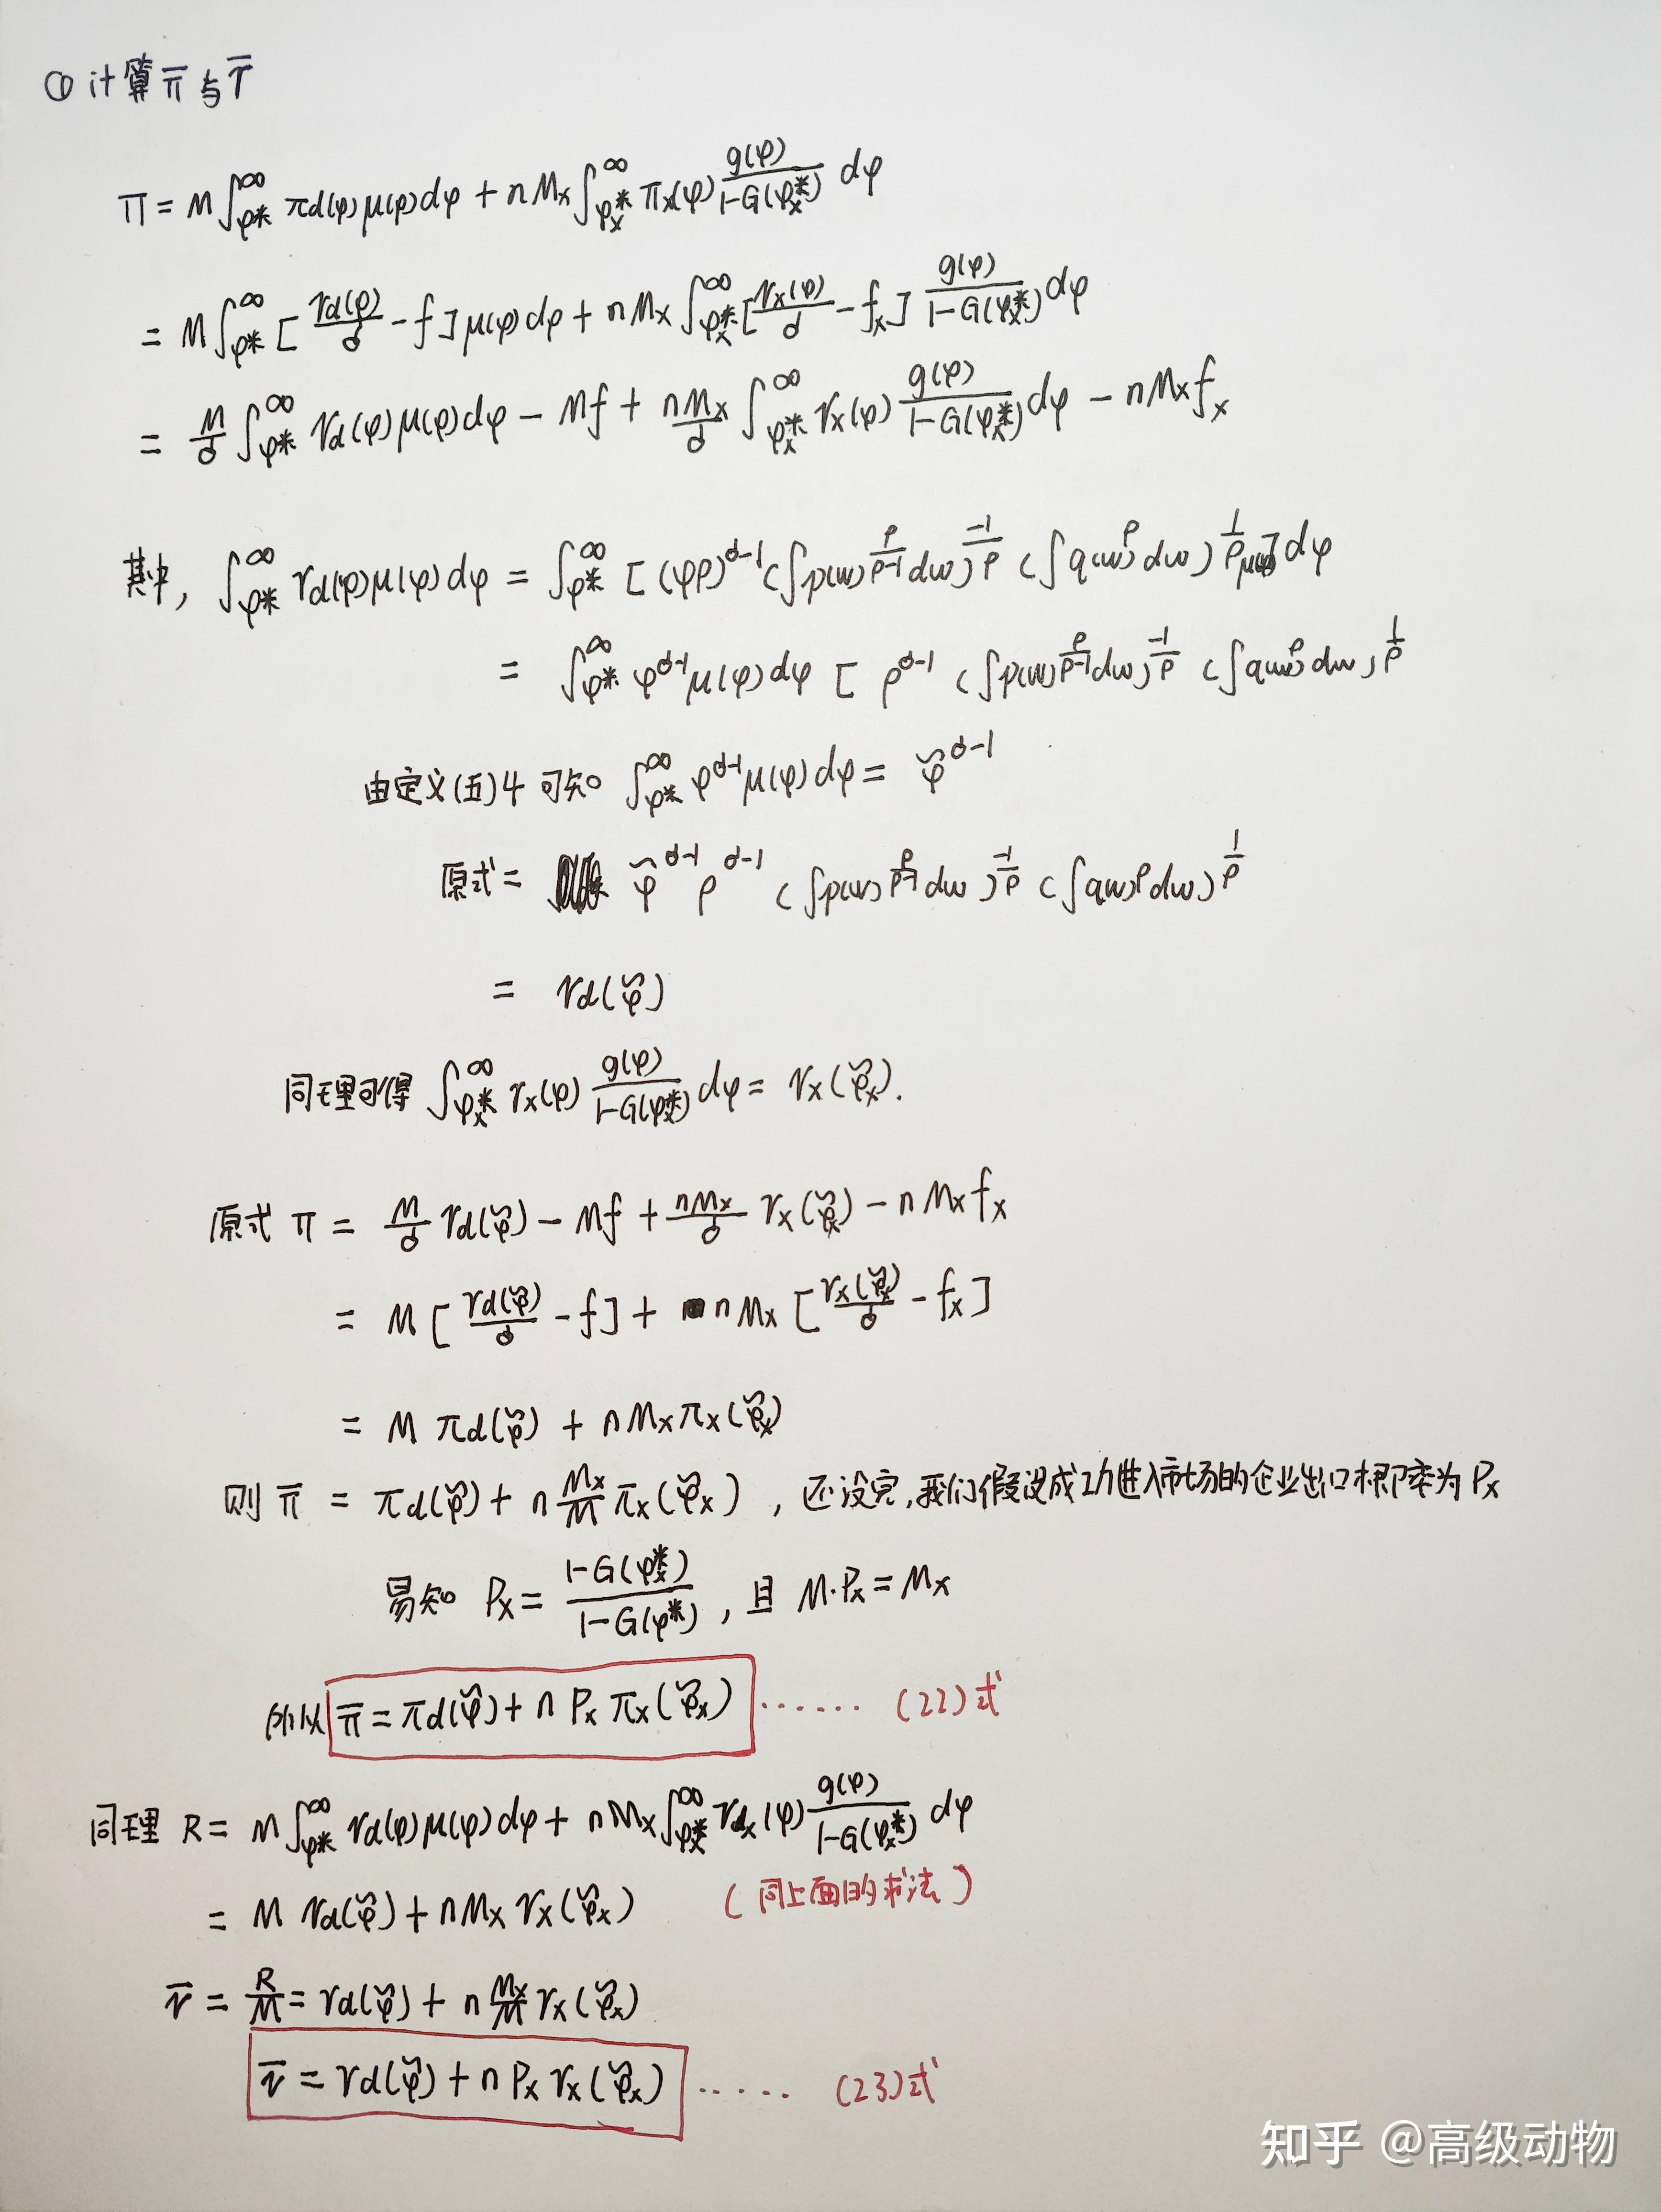 ① 计算 π̄ 与 r̄
Π = M∫_{φ*}^{∞} πd(φ)μ(φ)dφ + nMx∫_{φx*}^{∞} πx(φ) g(φ)/(1-G(φx*)) dφ
= M∫_{φ*}^{∞} [rd(φ)/σ - f]μ(φ)dφ + nMx∫_{φx*}^{∞} [rx(φ)/σ - fx] g(φ)/(1-G(φx*)) dφ
= M/σ ∫_{φ*}^{∞} rd(φ)μ(φ)dφ - Mf + nMx/σ ∫_{φx*}^{∞} rx(φ) g(φ)/(1-G(φx*)) dφ - nMxfx
其中, ∫_{φ*}^{∞} rd(φ)μ(φ)dφ = ∫_{φ*}^{∞} [(φρ)^{σ-1} (∫p(ω)^{ρ/(ρ-1)}dω)^{-1/ρ} (∫q(ω)^ρ dω)^{1/ρ} μ(φ)]dφ
= ∫_{φ*}^{∞} φ^{σ-1}μ(φ)dφ [ρ^{σ-1} (∫p(ω)^{ρ/(ρ-1)}dω)^{-1/ρ} (∫q(ω)^ρ dω)^{1/ρ}
由定义(五)4 可知 ∫_{φ*}^{∞} φ^{σ-1}μ(φ)dφ = φ̃^{σ-1}
原式 = φ̃^{σ-1} ρ^{σ-1} (∫p(ω)^{ρ/(ρ-1)}dω)^{-1/ρ} (∫q(ω)^ρ dω)^{1/ρ}
= rd(φ̃)
同理可得 ∫_{φx*}^{∞} rx(φ) g(φ)/(1-G(φx*)) dφ = rx(φ̃x).
原式 Π = M/σ rd(φ̃) - Mf + nMx/σ rx(φ̃x) - nMxfx
= M[rd(φ̃)/σ - f] + nMx[rx(φ̃x)/σ - fx]
= Mπd(φ̃) + nMxπx(φ̃x)
则 π̄ = πd(φ̃) + n Mx/M πx(φ̃x) , 还没完,我们假设成功进入市场的企业出口概率为Px
易知 Px = (1-G(φx*))/(1-G(φ*)) , 且 M·Px = Mx
所以 π̄ = πd(φ̃) + n Px πx(φ̃x) ······ (22)式
同理 R = M∫_{φ*}^{∞} rd(φ)μ(φ)dφ + nMx∫_{φx*}^{∞} rx(φ) g(φ)/(1-G(φx*)) dφ
= M rd(φ̃) + nMx rx(φ̃x) (同上面的求法)
r̄ = R/M = rd(φ̃) + n Mx/M rx(φ̃x)
r̄ = rd(φ̃) + n Px rx(φ̃x) ······ (23)式
知乎 @高级动物